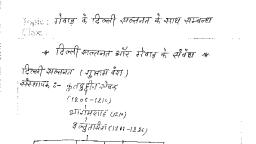 Topic: मेवाड़ के दिल्ली सल्तनत के साथ सम्बन्ध
Class
* दिल्ली सल्तनत और मेवाड़ के संबंध *
दिल्ली सल्तनत (गुलाम वंश)
संस्थापक :- कुतुबुद्दीन ऐबक
(1206-1210)
आरामशाह (1210)
इल्तुतमिश (